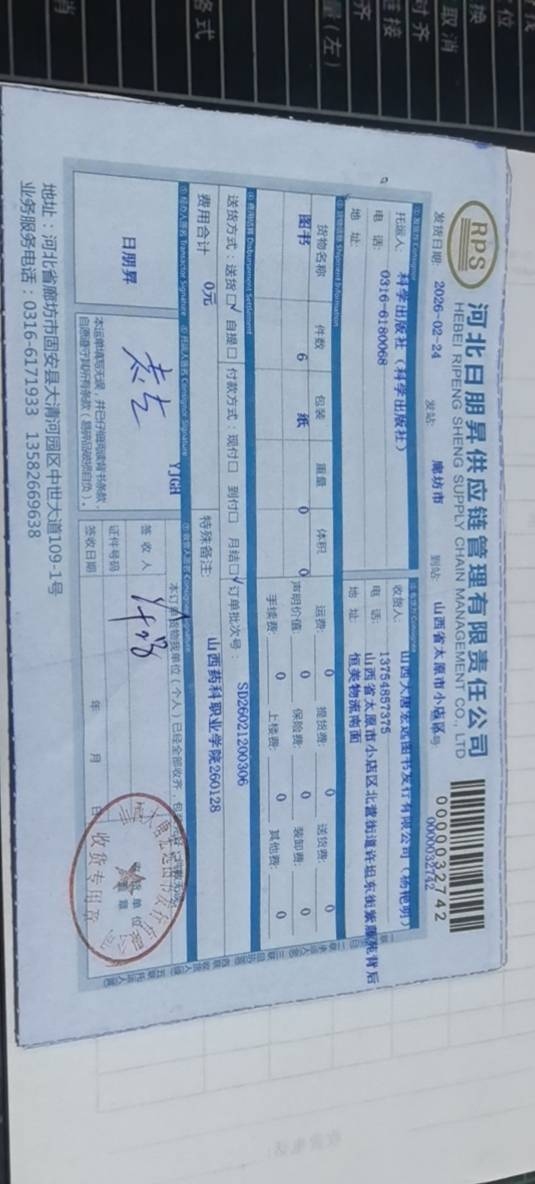 RPS
河北日朋昇供应链管理有限责任公司
HEBEI RIPENG SHENG SUPPLY CHAIN MANAGEMENT CO., LTD
0000032742
0000032742
发货日期: 2026-02-24 发站: 廊坊市 到站: 山西省太原市小店区
托运人: 科学出版社（科学出版社）
电 话: 0316-6180068
地 址:
收货人: 山西大唐宏远图书发行有限公司（杨艳明）
电 话: 13754857375
地 址: 山西省太原市小店区北营街道许坦东街紫藤苑背后
恒美物流南面
货物名称 件数 包装 重量 体积
图书 6 纸 0 0
运费: 0 提货费: 0 送货费: 0
声明价值: 0 保险费: 0 装卸费: 0
手续费: 0 上楼费: 0 其他费: 0
送货方式: 送货☑ 自提□ 付款方式: 现付□ 到付□ 月结☑ 订单批次号: SD26021200306
费用合计 0元 特殊备注: 山西药科职业学院260128
日朋昇
YJGH
本运单填写无误，并已仔细阅读背书条款，
自愿遵守其所有条款（易碎品破损自负）。
签收人
证件号码
签收日期 年 月 日
收货专用章
地址: 河北省廊坊市固安县大清河园区中世大道109-1号
业务服务电话: 0316-6171933 13582669638